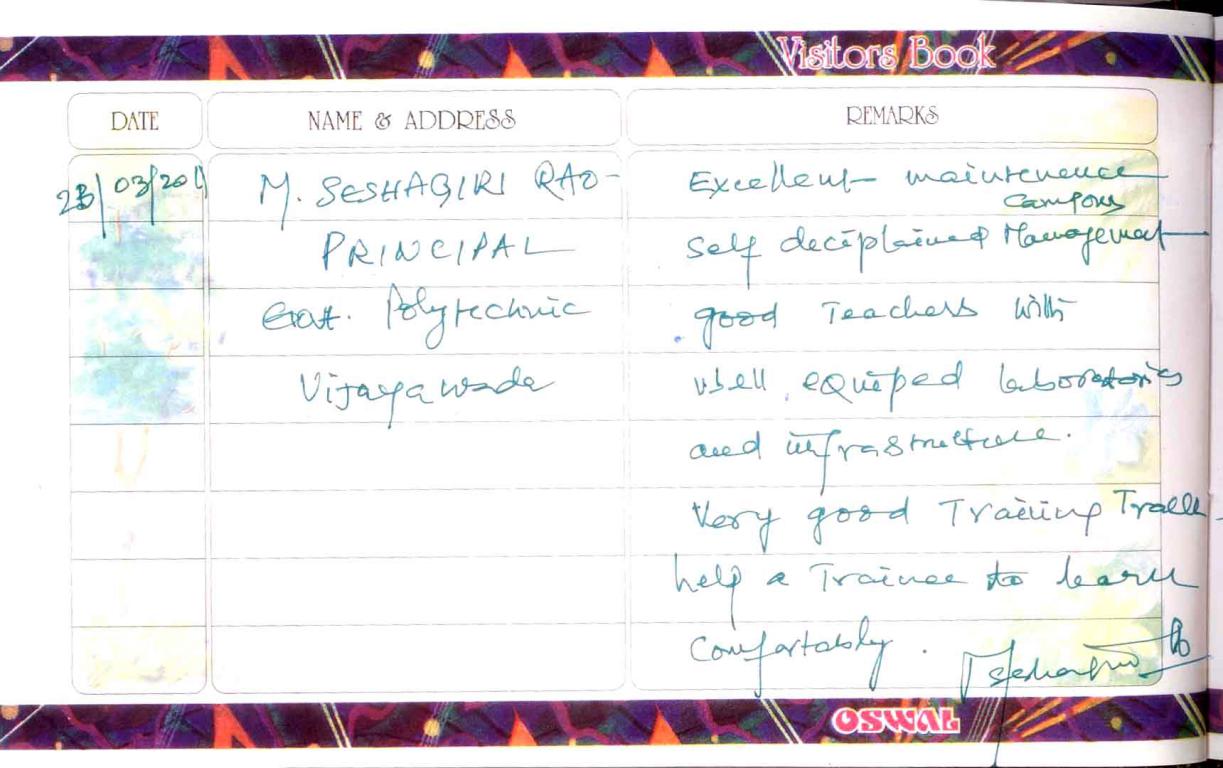 Visitors Book
DATE NAME & ADDRESS REMARKS
23/03/2011 M. SESHAGIRI RAO Excellent maintenence
campous
PRINCIPAL self deciplained Management
Govt. Polytechnic good Teachers with
Vijayawada well equiped laboratories
and infrastructure.
Very good Training
help a Trainee to learn
Comfortably.
OSWAL